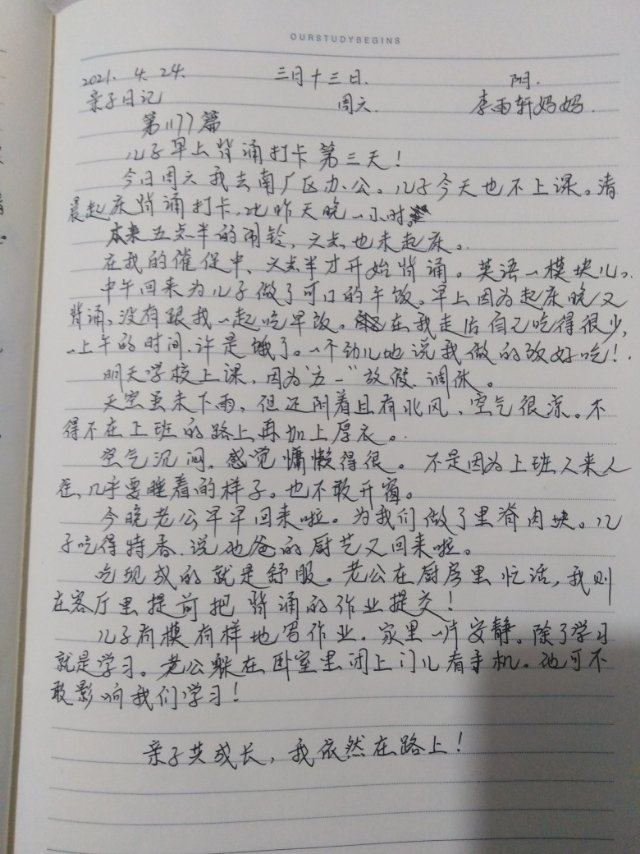 OURSTUDYBEGINS
2021. 4. 24. 三月十三日. 阴.
亲子日记 周六. 李雨轩妈妈.
第1177篇
儿子早上背诵打卡第三天!
今日周六我去南厂区办公。儿子今天也不上课。清
晨起床背诵打卡,比昨天晚一小时
本来五点半的闹铃,六点也未起床。
在我的催促中,六点半才开始背诵。英语一模块儿。
中午回来为儿子做了可口的午饭。早上因为起床晚又
背诵,没有跟我一起吃早饭。在我走后自己吃得很少,
一上午的时间,许是饿了。一个劲儿地说我做的饭好吃!
明天学校上课,因为“五一”放假、调休。
天空虽未下雨,但还阴着且有北风、空气很凉。不
得不在上班的路上再加上厚衣。
空气沉闷,感觉慵懒得很。不是因为上班人来人
往,几乎要睡着的样子。也不敢开窗。
今晚老公早早回来啦。为我们做了里脊肉块。儿
子吃得特香、说他爸的厨艺又回来啦。
吃现成的就是舒服。老公在厨房里忙活,我则
在客厅里提前把背诵的作业提交!
儿子有模有样地写作业。家里一片安静。除了学习
就是学习。老公躲在卧室里闭上门儿看手机。他可不
敢影响我们学习!
亲子共成长,我依然在路上!